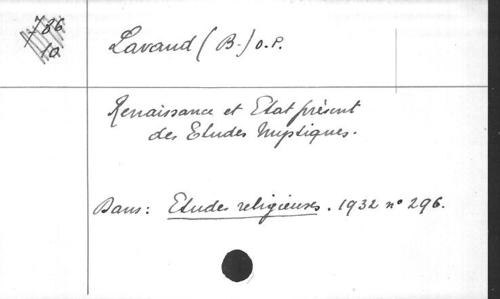 786
10
Lavaud (B.) O.P.
Renaissance et Etat présent
des Etudes mystiques.
Dans: Etudes religieuses. 1932 nº 296.